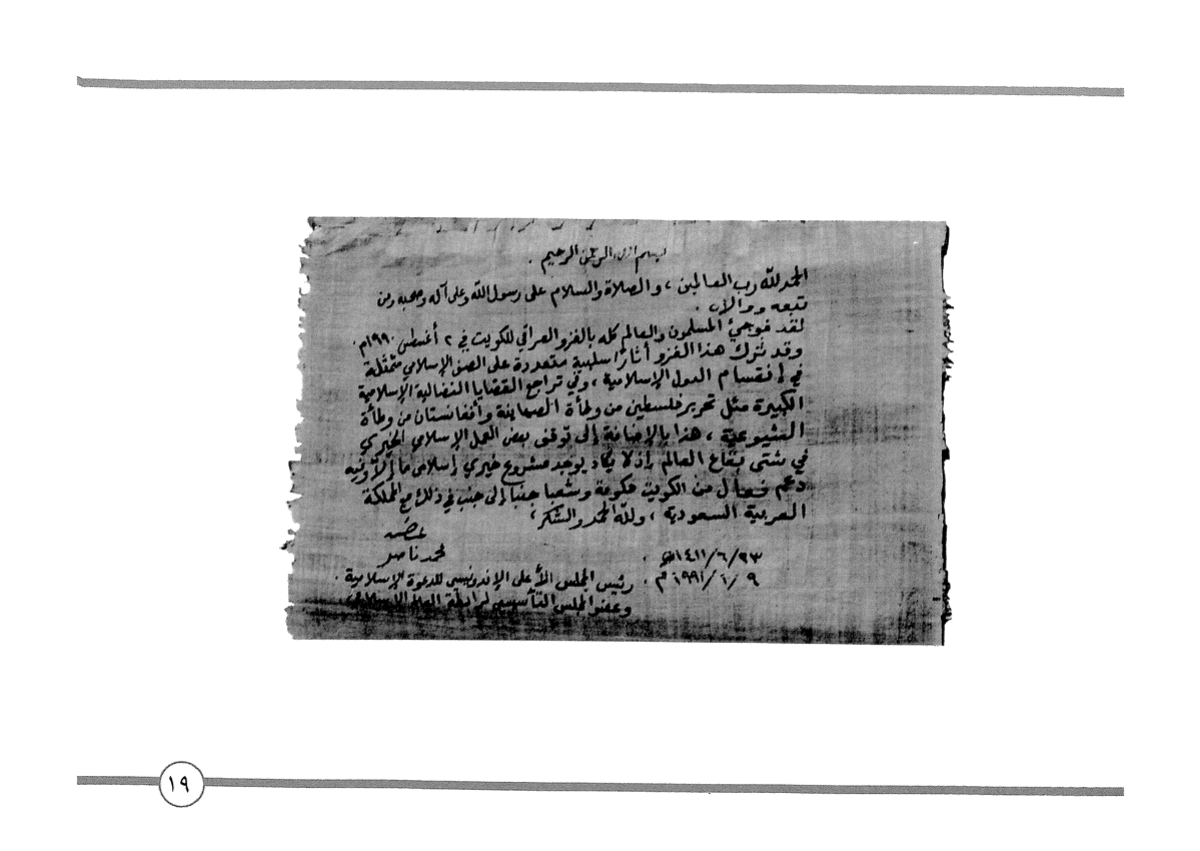 بسم الله الرحمن الرحيم .
الحمد لله رب العالمين ، والصلاة والسلام على رسول الله وعلى آله وصحبه ومن
تبعه ووالاه .
لقد فوجئ المسلمون والعالم كله بالغزو العراقي للكويت في ٢ أغسطس ١٩٩٠م .
وقد ترك هذا الغزو أثارًا سلبية متعددة على الصف الإسلامي متمثلة
في إنقسام الدول الإسلامية ، وفي تراجع القضايا النضالية الإسلامية
الكبيرة مثل تحرير فلسطين من وطأة الصهاينة وأفغانستان من وطأة
الشيوعية ، هذا بالإضافة إلى توقف بعض العمل الإسلامي الخيري
في شتى بقاع العالم إذ لا يكاد يوجد مشروع خيري إسلامي ما إلا وفيه
دعم فعال من الكويت حكومة وشعبا جنبا إلى جنب في ذلك مع المملكة
العربية السعودية ، ولله الحمد والشكر ،
محمد ناصر
٢٣/٦/١٤١١هـ .
٩/١/١٩٩١م .
رئيس المجلس الأعلى الإندونيسي للدعوة الإسلامية .
وعضو المجلس التأسيسي لرابطة العالم الإسلامي
١٩